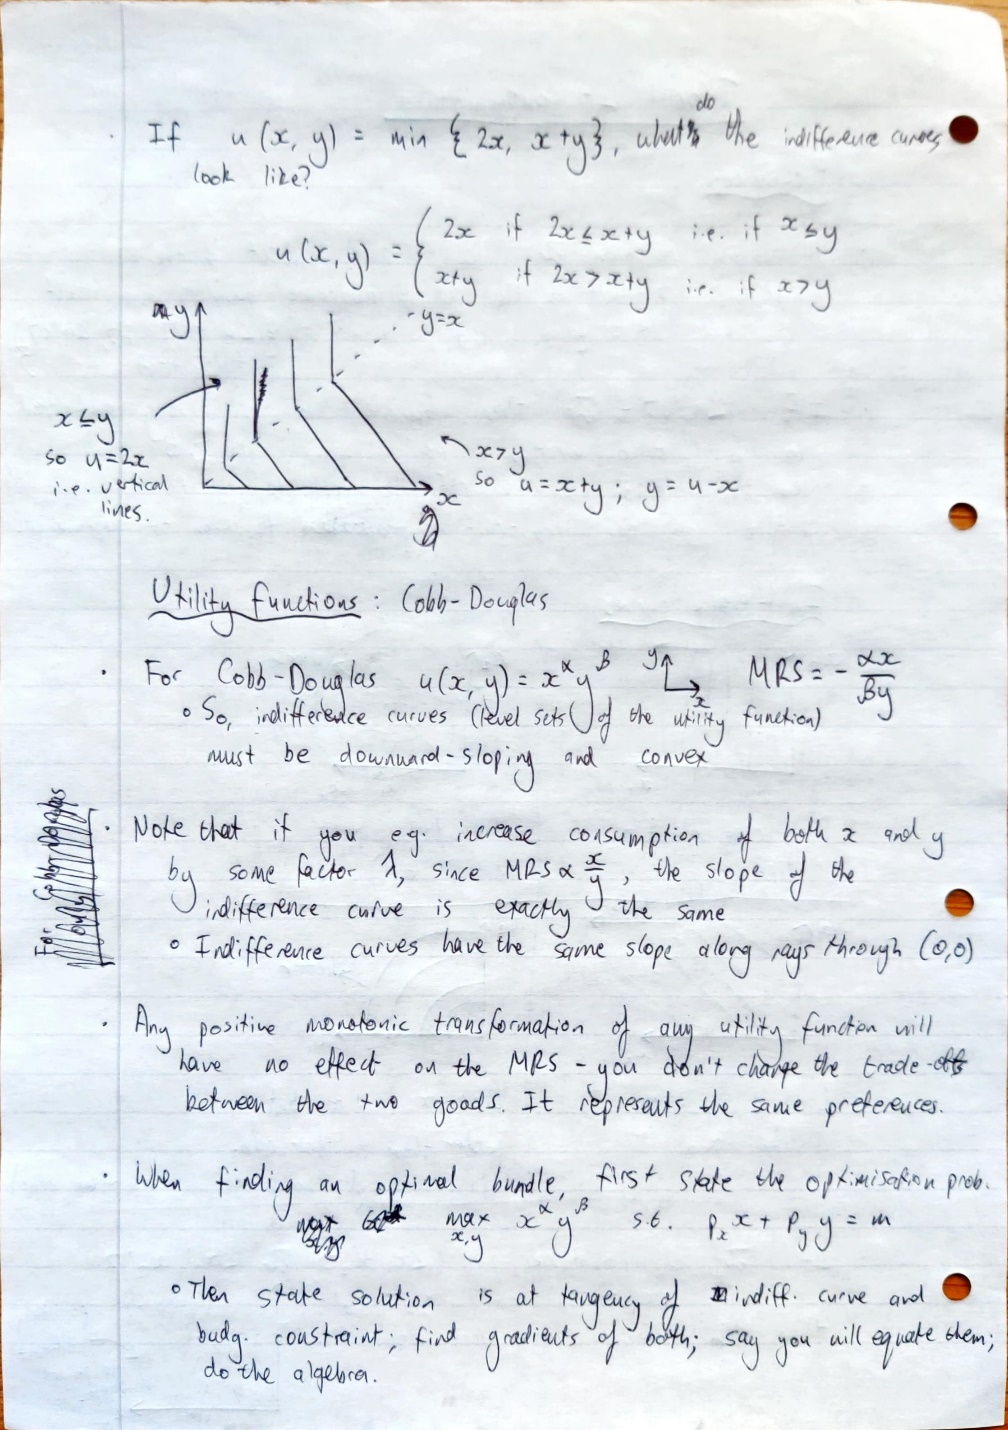 If u(x, y) = min { 2x, x+y}, what do the indifference curves
look like?
u(x, y) = { 2x if 2x ≤ x+y i.e. if x ≤ y
x+y if 2x > x+y i.e. if x > y
y
y=x
x ≤ y
so u=2x
i.e. vertical
lines.
x > y
so u = x+y ; y = u-x
x
Utility functions : Cobb-Douglas
· For Cobb-Douglas u(x, y) = x^α y^β y x MRS = - αx/βy
∘ So, indifference curves (level sets of the utility function)
must be downward-sloping and convex
For Cobb-Douglas
· Note that if you e.g. increase consumption of both x and y
by some factor λ, since MRS ∝ x/y, the slope of the
indifference curve is exactly the same
∘ Indifference curves have the same slope along rays through (0,0)
· Any positive monotonic transformation of any utility function will
have no effect on the MRS - you don't change the trade-offs
between the two goods. It represents the same preferences.
· When finding an optimal bundle, first state the optimisation prob.
max x,y x^α y^β s.t. p_x x + p_y y = m
∘ Then state solution is at tangency of indiff. curve and
budg. constraint; find gradients of both; say you will equate them;
do the algebra.